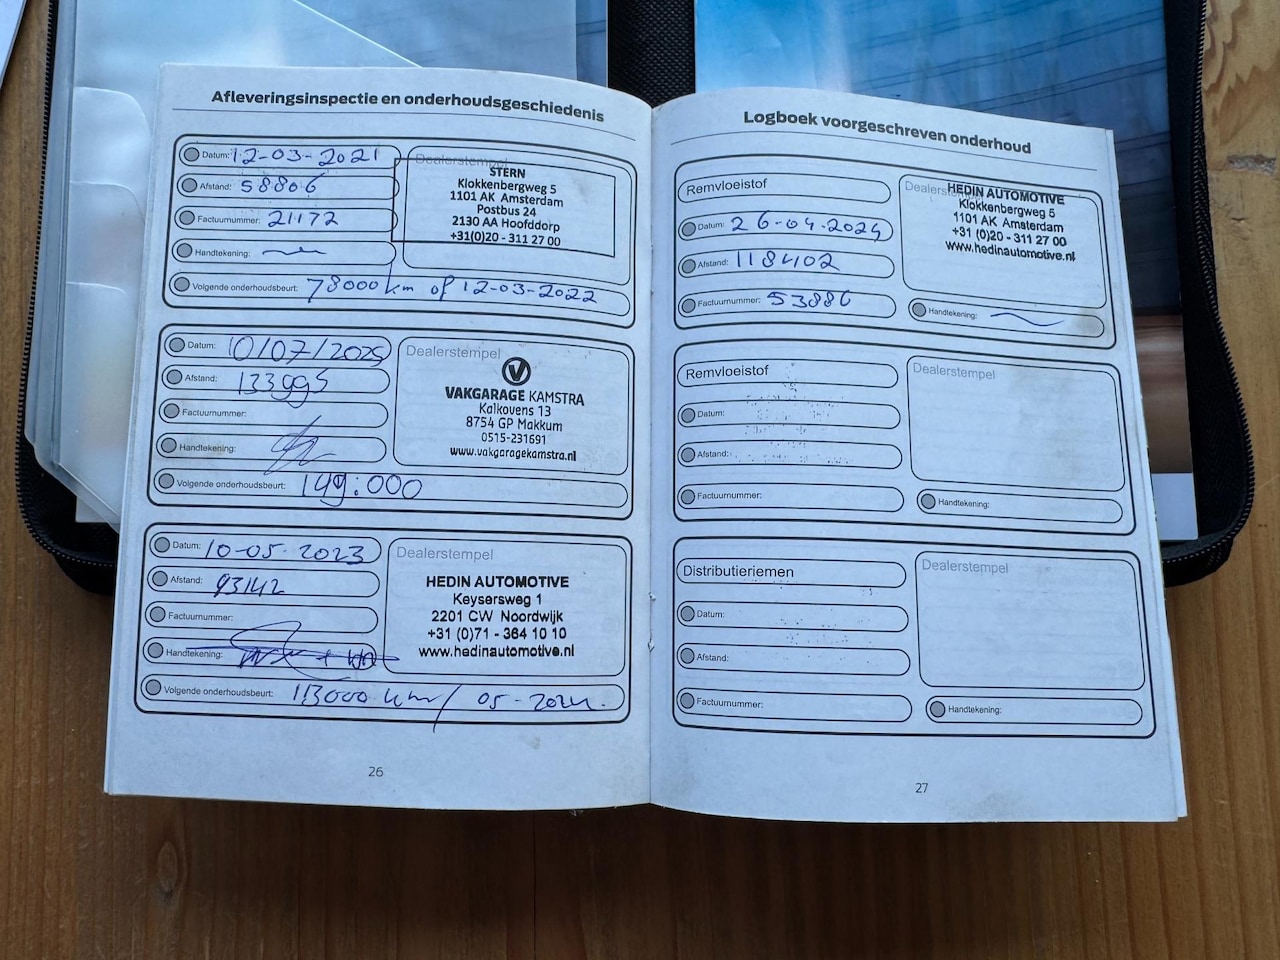 Afleveringsinspectie en onderhoudsgeschiedenis
Datum: 12-03-2021
Afstand: 58806
Factuurnummer: 21172
Handtekening:
Volgende onderhoudsbeurt: 78000 km of 12-03-2022
Dealerstempel
STERN
Klokkenbergweg 5
1101 AK Amsterdam
Postbus 24
2130 AA Hoofddorp
+31(0)20 - 311 27 00
Datum: 10/07/2025
Afstand: 133995
Factuurnummer:
Handtekening:
Volgende onderhoudsbeurt: 149:000
Dealerstempel
VAKGARAGE KAMSTRA
Kalkovens 13
8754 GP Makkum
0515-231691
www.vakgaragekamstra.nl
Datum: 10-05-2023
Afstand: 93142
Factuurnummer:
Handtekening:
Volgende onderhoudsbeurt: 113000 km/ 05-2024.
Dealerstempel
HEDIN AUTOMOTIVE
Keysersweg 1
2201 CW Noordwijk
+31 (0)71 - 364 10 10
www.hedinautomotive.nl
26
Logboek voorgeschreven onderhoud
Remvloeistof
Datum: 26-04-2024
Afstand: 118402
Factuurnummer: 53886
Dealerstempel
HEDIN AUTOMOTIVE
Klokkenbergweg 5
1101 AK Amsterdam
+31 (0)20 - 311 27 00
www.hedinautomotive.nl
Handtekening:
Remvloeistof
Datum:
Afstand:
Factuurnummer:
Dealerstempel
Handtekening:
Distributieriemen
Datum:
Afstand:
Factuurnummer:
Dealerstempel
Handtekening:
27